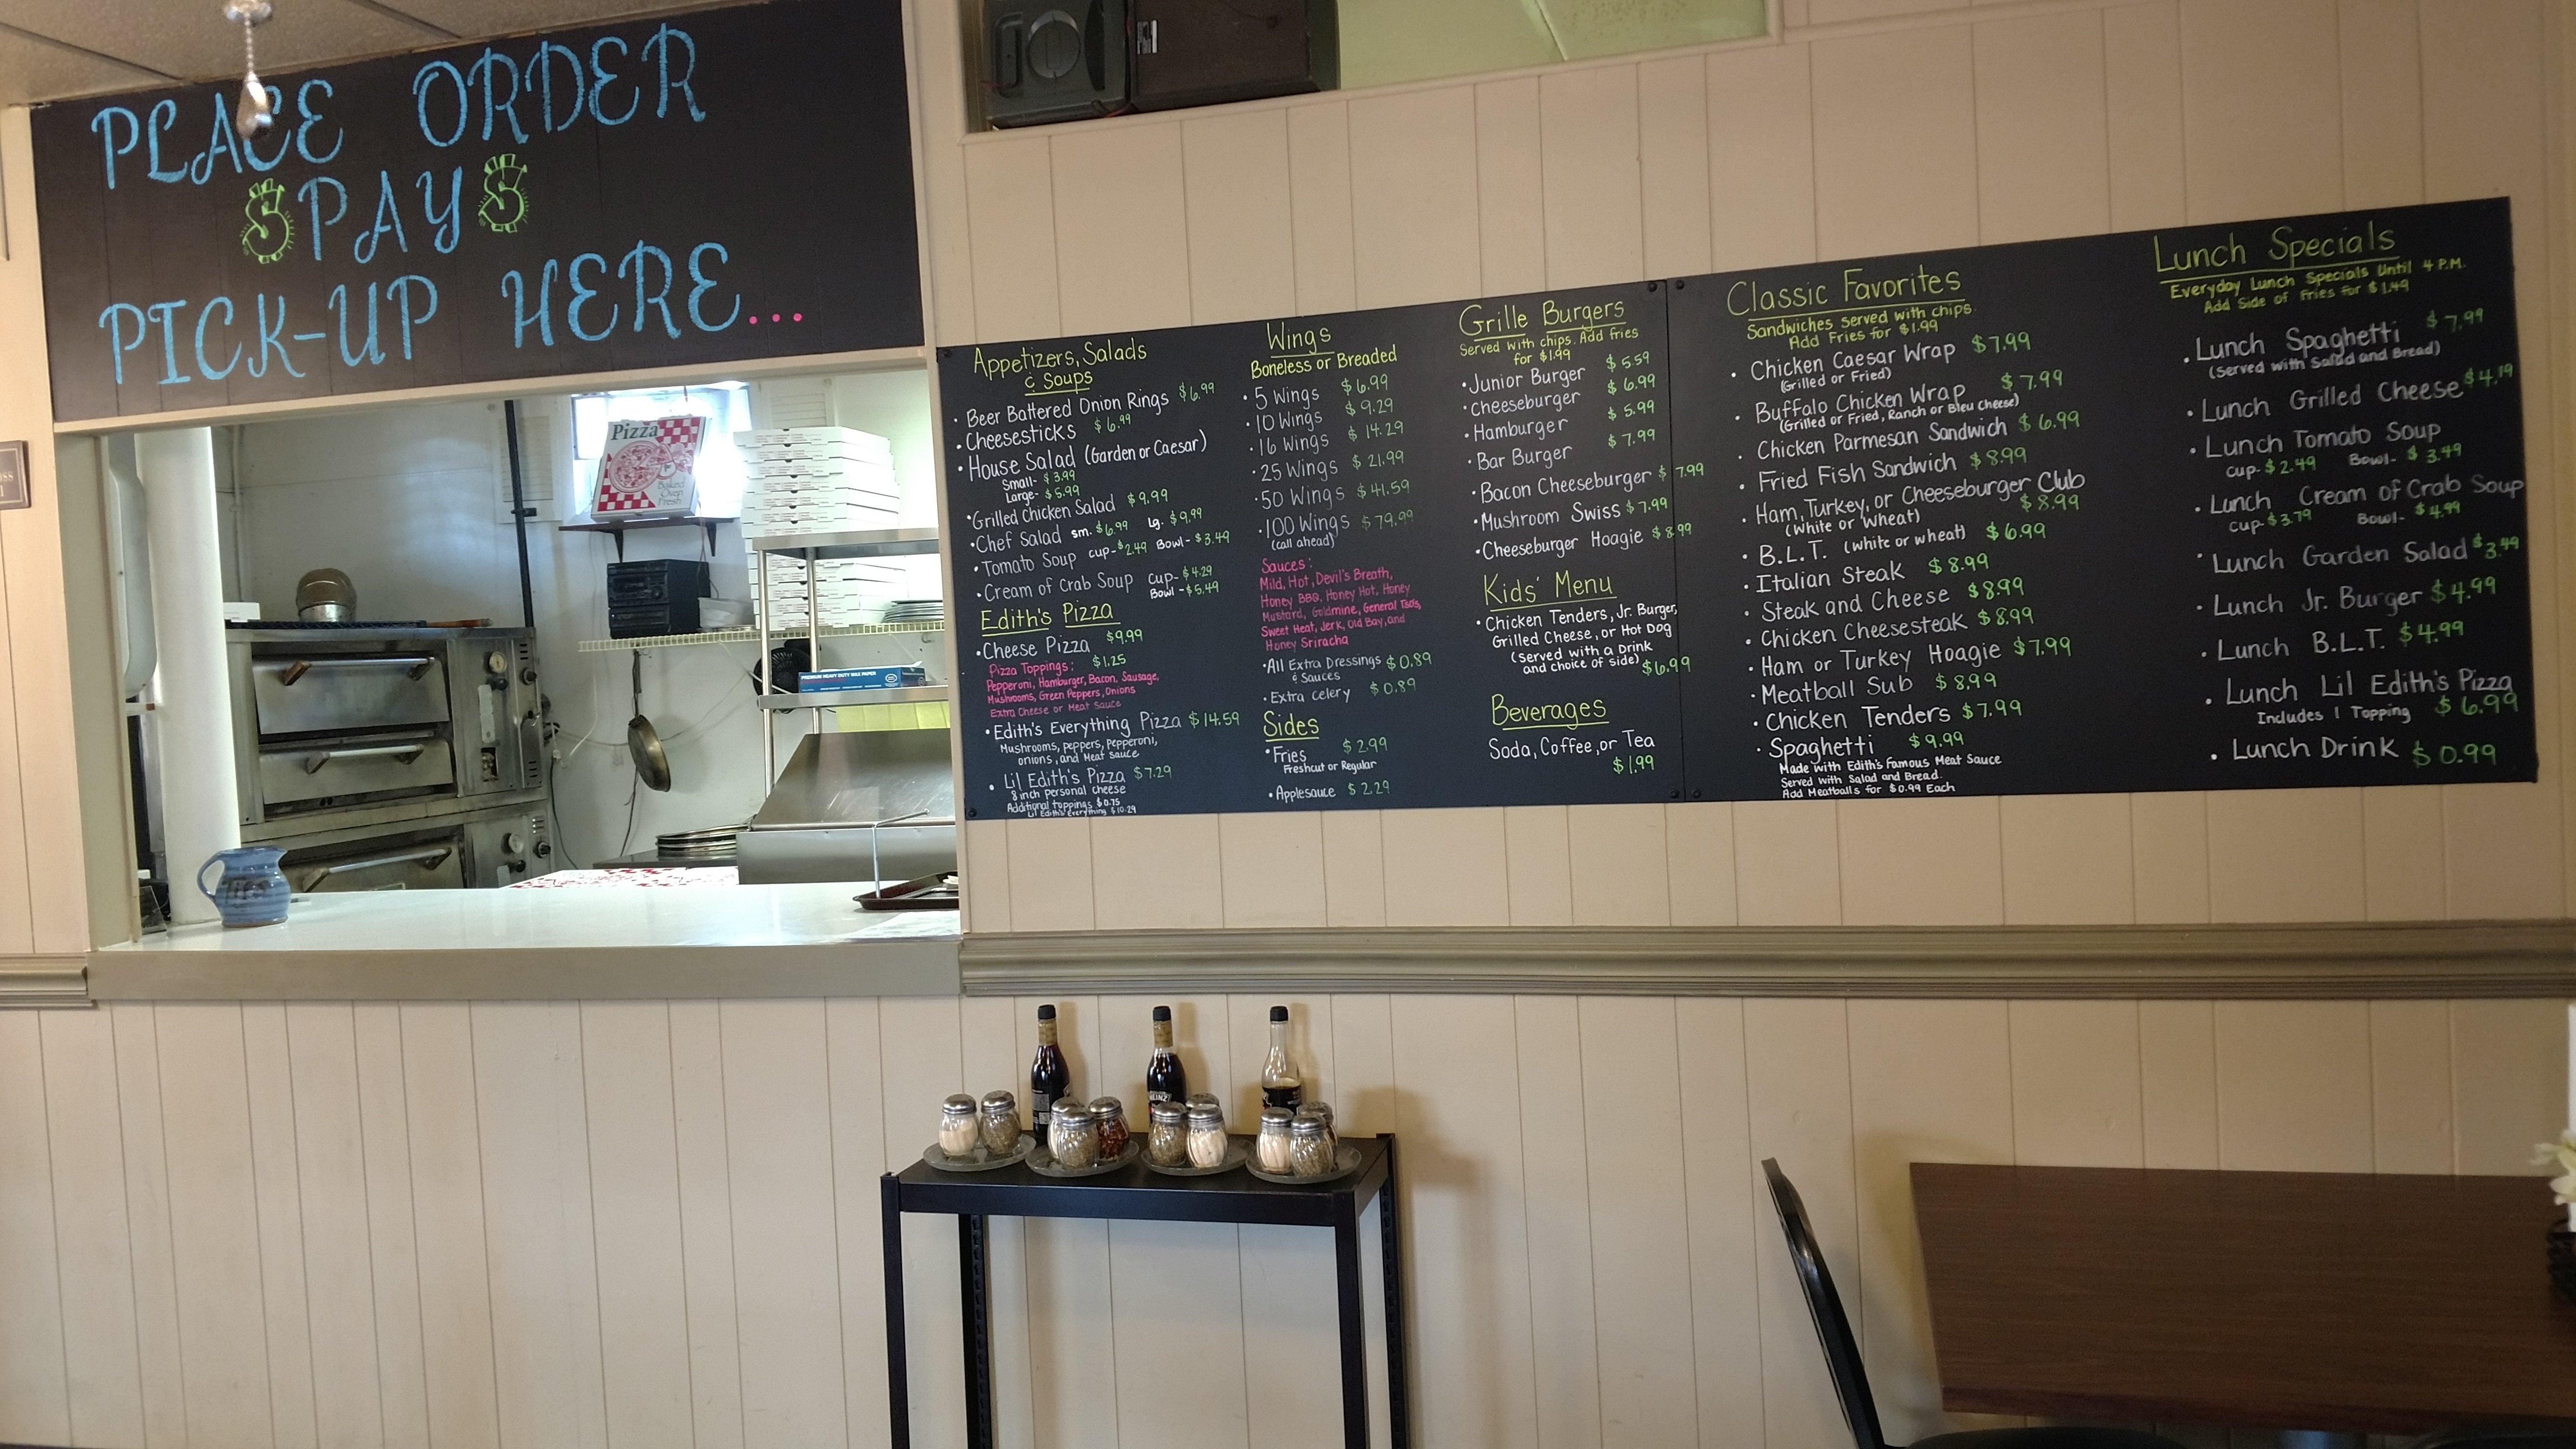 PLACE ORDER
$PAY$
PICK-UP HERE...
Pizza
Baked
Oven
Fresh
PREMIUM HEAVY DUTY WAX PAPER
Appetizers, Salads
& Soups
• Beer Battered Onion Rings $6.99
• Cheesesticks $6.99
• House Salad (Garden or Caesar)
Small- $3.99
Large- $5.99
• Grilled Chicken Salad $9.99
• Chef Salad sm. $6.99 lg. $9.99
• Tomato Soup cup- $2.49 Bowl- $3.49
• Cream of Crab Soup cup- $4.29
Bowl - $5.49
Edith's Pizza
• Cheese Pizza $9.99
Pizza Toppings: $1.25
Pepperoni, Hamburger, Bacon, Sausage,
Mushrooms, Green Peppers, Onions
Extra Cheese or Meat Sauce
• Edith's Everything Pizza $14.59
Mushrooms, peppers, Pepperoni,
onions, and Meat sauce
• Lil Edith's Pizza $7.29
8 inch personal cheese
Additional toppings $0.75
Lil Edith's Everything $10.29
Wings
Boneless or Breaded
• 5 Wings $6.99
• 10 Wings $9.29
• 16 Wings $14.29
• 25 Wings $21.99
• 50 Wings $41.59
• 100 Wings $79.99
(call ahead)
Sauces:
Mild, Hot, Devil's Breath,
Honey BBQ, Honey Hot, Honey
Mustard, Goldmine, General Tso's,
Sweet Heat, Jerk, Old Bay, and
Honey Sriracha
• All Extra Dressings $0.89
& Sauces
• Extra celery $0.89
Sides
• Fries $2.99
Freshcut or Regular
• Applesauce $2.29
Grille Burgers
Served with chips. Add fries
for $1.99
• Junior Burger $5.59
• Cheeseburger $6.99
• Hamburger $5.99
• Bar Burger $7.99
• Bacon Cheeseburger $7.99
• Mushroom Swiss $7.99
• Cheeseburger Hoagie $8.99
Kids' Menu
• Chicken Tenders, Jr. Burger,
Grilled Cheese, or Hot Dog
(served with a Drink
and choice of side) $6.99
Beverages
Soda, Coffee, or Tea
$1.99
Classic Favorites
Sandwiches served with chips.
Add Fries for $1.99
• Chicken Caesar Wrap $7.99
(Grilled or Fried)
• Buffalo Chicken Wrap $7.99
(Grilled or Fried, Ranch or Bleu Cheese)
• Chicken Parmesan Sandwich $6.99
• Fried Fish Sandwich $8.99
• Ham, Turkey, or Cheeseburger Club
(White or Wheat) $8.99
• B.L.T. (white or wheat) $6.99
• Italian Steak $8.99
• Steak and Cheese $8.99
• Chicken Cheesesteak $8.99
• Ham or Turkey Hoagie $7.99
• Meatball Sub $8.99
• Chicken Tenders $7.99
• Spaghetti $9.99
Made with Edith's Famous Meat Sauce
Served with Salad and Bread.
Add Meatballs for $0.99 Each
Lunch Specials
Everyday Lunch Specials Until 4 P.M.
Add Side of Fries for $1.49
• Lunch Spaghetti $7.99
(Served with Salad and Bread)
• Lunch Grilled Cheese $4.19
• Lunch Tomato Soup
cup- $2.49 Bowl- $3.49
• Lunch Cream of Crab Soup
cup- $3.79 Bowl- $4.99
• Lunch Garden Salad $3.49
• Lunch Jr. Burger $4.99
• Lunch B.L.T. $4.99
• Lunch Lil Edith's Pizza
Includes 1 Topping $6.99
• Lunch Drink $0.99
HEINZ